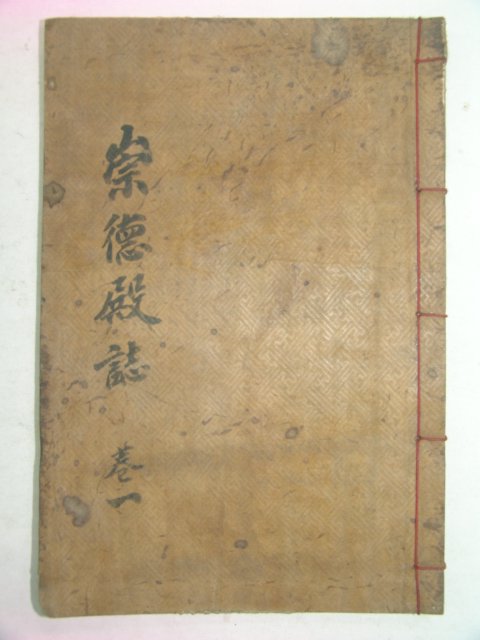 崇德殿誌
卷一